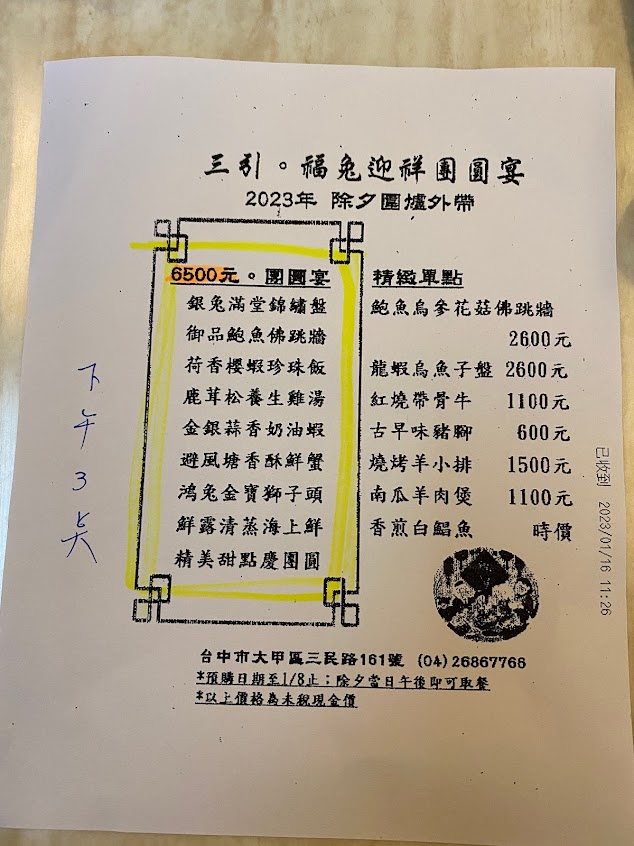 三引。福兔迎祥團圓宴
2023年 除夕圍爐外帶
6500元。團圓宴
銀兔滿堂錦繡盤
御品鮑魚佛跳牆
荷香櫻蝦珍珠飯
鹿茸松養生雞湯
金銀蒜香奶油蝦
避風塘香酥鮮蟹
鴻兔金寶獅子頭
鮮露清蒸海上鮮
精美甜點慶團圓
精緻單點
鮑魚烏參花菇佛跳牆
2600元
龍蝦烏魚子盤 2600元
紅燒帶骨牛 1100元
古早味豬腳 600元
燒烤羊小排 1500元
南瓜羊肉煲 1100元
香煎白鯧魚 時價
台中市大甲區三民路161號 (04)26867768
*預購日期至1/8止；除夕當日午後即可取餐
*以上價格為未稅現金價
下午3点
已收到 2023/01/16 11:26